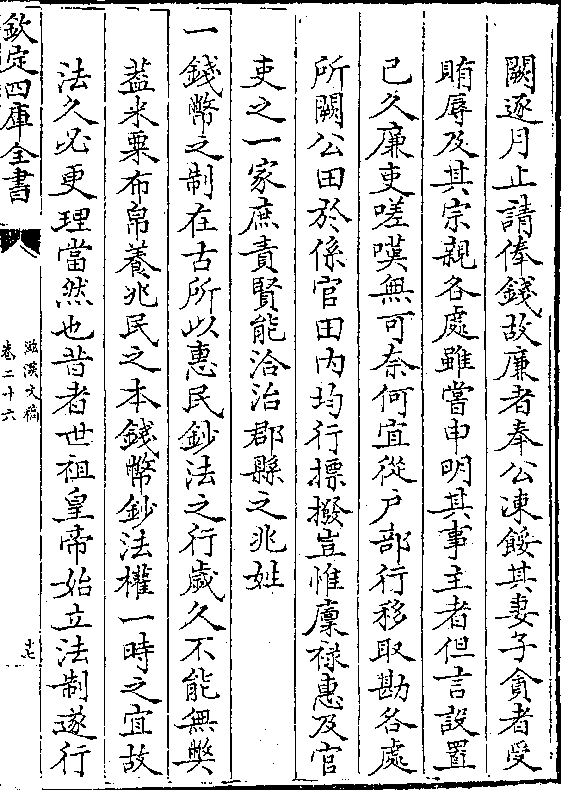 闕逐月止請俸錢故廉者奉公凍餒其妻子貪者受
賄辱及其宗親各處雖嘗申明其事主者但言設置
已久廉吏嗟嘆無可奈何宜從户部行移取勘各處
所闕公田於係官田内均行摽撥豈惟廪禄惠及官
吏之一家庶責賢能洽治郡縣之兆姓
一錢幣之制在古所以惠民鈔法之行歲久不能無弊
葢米粟布帛養兆民之本錢幣鈔法權一時之宜故
法久必更理當然也昔者世祖皇帝始立法制遂行
欽定四庫全書
滋溪文稿
卷二十六
十七